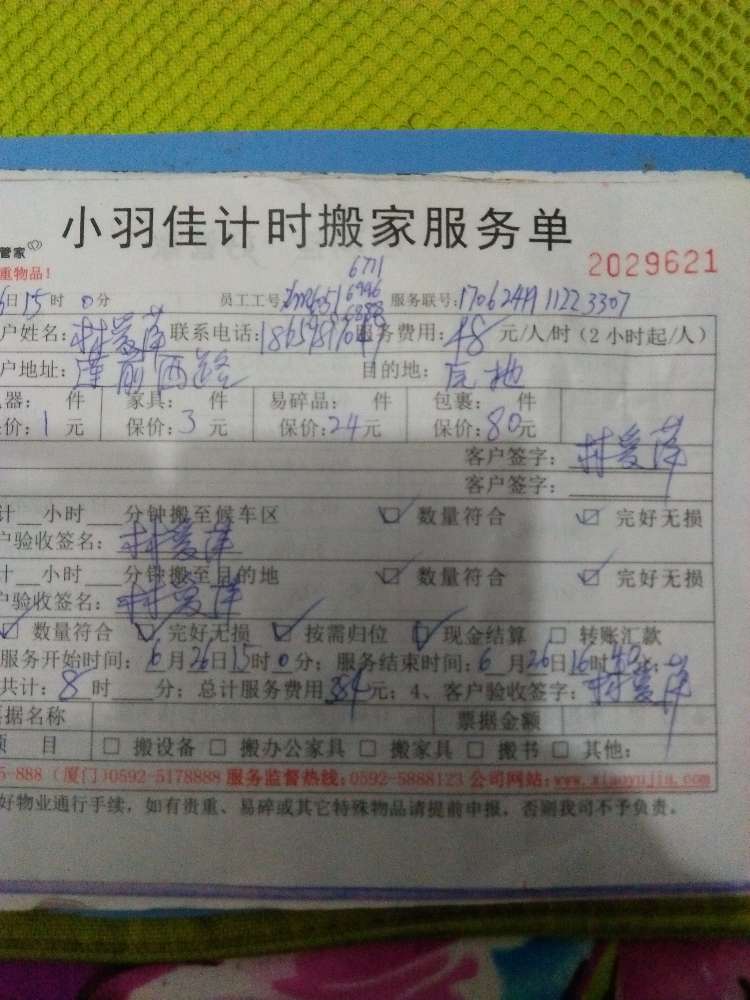 小羽佳计时搬家服务单
管家
重物品！
2029621
6771
6日15时0分 员工工号: 6051 6996 6888 服务联号:170624H11223307
户姓名:林爱萍 联系电话: 服务费用:48元/人/时(2小时起/人)
户地址:莲前西路 目的地:原地
器: 件 家具: 件 易碎品: 件 包裹: 件
价:1元 保价:3元 保价:24元 保价:80元
客户签字:林爱萍
客户签字:
计__小时__分钟搬至候车区 ☑数量符合 ☑完好无损
户验收签名:林爱萍
计__小时__分钟搬至目的地 ☑数量符合 ☑完好无损
户验收签名:林爱萍
☑数量符合 ☑完好无损 ☑按需归位 ☑现金结算 □转账汇款
服务开始时间:6月26日15时0分;服务结束时间:6月26日16时40分;
共计:8时__分;总计服务费用384元;4、客户验收签字:林爱萍
票据名称 票据金额
项 目 □搬设备 □搬办公家具 □搬家具 □搬书 □其他:
5-888 (厦门)0592-5178888 服务监督热线:0592-5888123 公司网站:www.xiaoyujia.com
好物业通行手续，如有贵重、易碎或其它特殊物品请提前申报，否则我司不予负责。